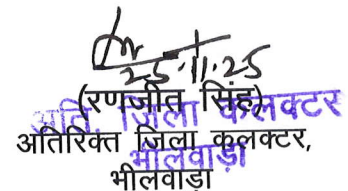 25.11.25
(रणजीत सिंह)
अति जिला कलक्टर
अतिरिक्त जिला कलक्टर,
भीलवाड़ा
भीलवाड़ा